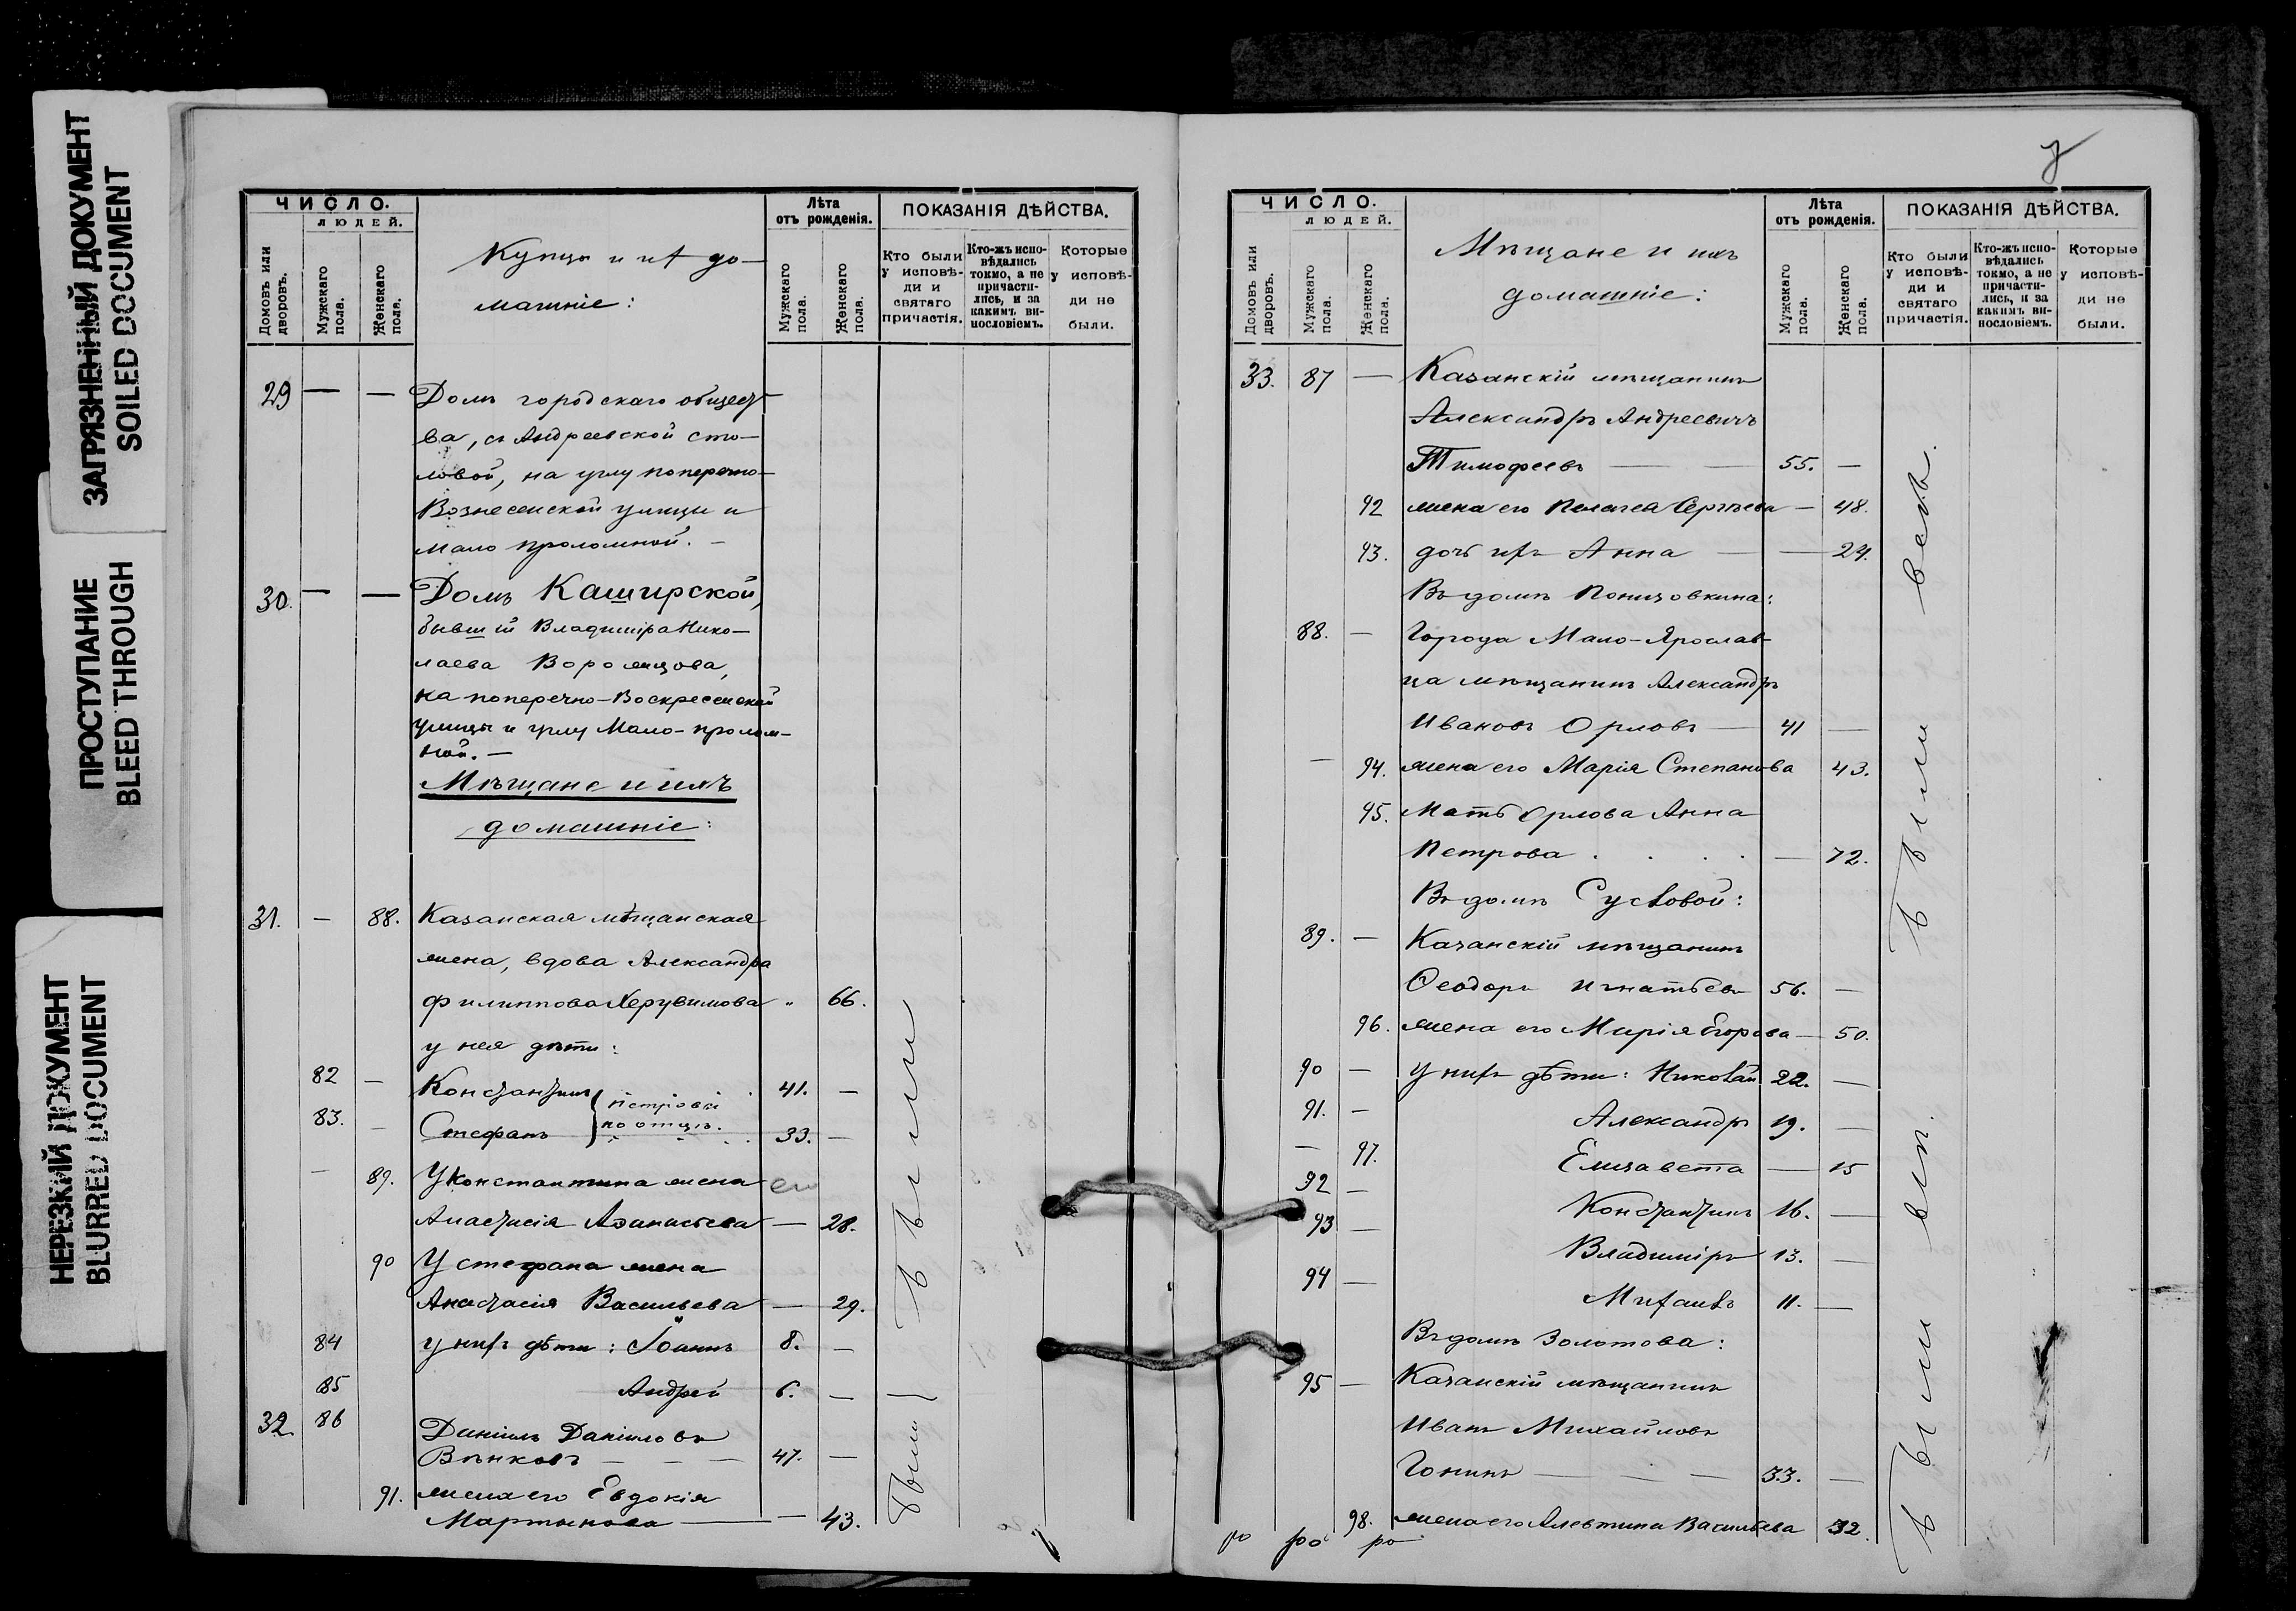 ЗАГРЯЗНЕННЫЙ ДОКУМЕНТ
SOILED DOCUMENT
ПРОСТУПАНИЕ
BLEED THROUGH
НЕРЕЗКИЙ ДОКУМЕНТ
BLURRED DOCUMENT
ЧИСЛО.
ЛЮДЕЙ.
Домовъ или дворовъ.
Мужскаго пола.
Женскаго пола.
Купцы и их до-
машніе:
Лѣта
отъ рожденія.
Мужскаго пола.
Женскаго пола.
ПОКАЗАНІЯ ДѢЙСТВА.
Кто были у исповѣ-ди и святаго причастія.
Кто-жъ испо-вѣдались токмо, а не причасти-лись, и за какимъ ви-нословіемъ.
Которые у исповѣ-ди не были.
29 — — Домъ городскаго общест
ва, съ Андреевской сто-
ловой, на углу поперечно-
Вознесенской улицы и
Мало проломной. —
30. — — Домъ Каширской,
бывшій Владиміра Нико-
лаева Воронцова,
на поперечно-Воскресенской
улицы и углу Мало-пролом-
ной. —
Мѣщане и ихъ
домашніе:
31. — 88. Казанская мѣщанская
жена, вдова Александра
Филиппова Херувимова " 66.
у нея дѣти:
82 — Константинъ { Петровы 41. —
83. — Стефанъ по отцѣ. 33. —
— 89. У Константина жена его
Анастасія Аѳанасьева — 28.
90 У Стефана жена
Анастасія Васильева — 29.
84 у нихъ дѣти: Іоаннъ 8. —
85 Андрей 6. —
32. 86 Даніилъ Даніиловъ
Вѣнковъ — — — 47. —
91. жена его Евдокія
Мартынова — — 43.
Были
Были
ЧИСЛО.
ЛЮДЕЙ.
Домовъ или дворовъ.
Мужскаго пола.
Женскаго пола.
Мѣщане и ихъ
домашніе:
Лѣта
отъ рожденія.
Мужскаго пола.
Женскаго пола.
ПОКАЗАНІЯ ДѢЙСТВА.
Кто были у исповѣ-ди и святаго причастія.
Кто-жъ испо-вѣдались токмо, а не причасти-лись, и за какимъ ви-нословіемъ.
Которые у исповѣ-ди не были.
33. 87 — Казанскій мѣщанинъ
Александръ Андреевичъ
Тимофеевъ — — 55. —
92 жена его Пелагея Сергѣева — 48.
93. дочь ихъ Анна — — 29.
Въ домѣ Понизовкина:
88. — Города Мало-Ярослав-
ца мѣщанинъ Александръ
Ивановъ Орловъ — 41 —
— 94. жена его Марія Степанова 43.
95. Мать Орлова Анна
Петрова . . . . — 72.
Въ домѣ Сусловой:
89. — Казанскій мѣщанинъ
Ѳеодоръ Игнатьевъ 56. —
96. жена его Марія Егорова — 50.
90 — у нихъ дѣти: Николай 22. —
91. — Александръ 19. —
— 97. Елизавета — 15
92 — Константинъ 16. —
93 — Владиміръ 13. —
94 — Михаилъ 11. —
Въ домѣ Золотова:
95 — Казанскій мѣщанинъ
Иванъ Михайловъ
Гонинъ — — — 33. —
98. жена его Алевтина Васильева 32.
Были
Были